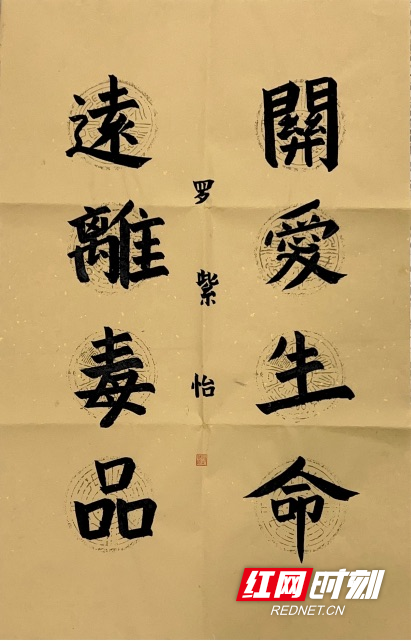 關愛生命
遠離毒品
罗紫怡
红网时刻
REDNET.CN